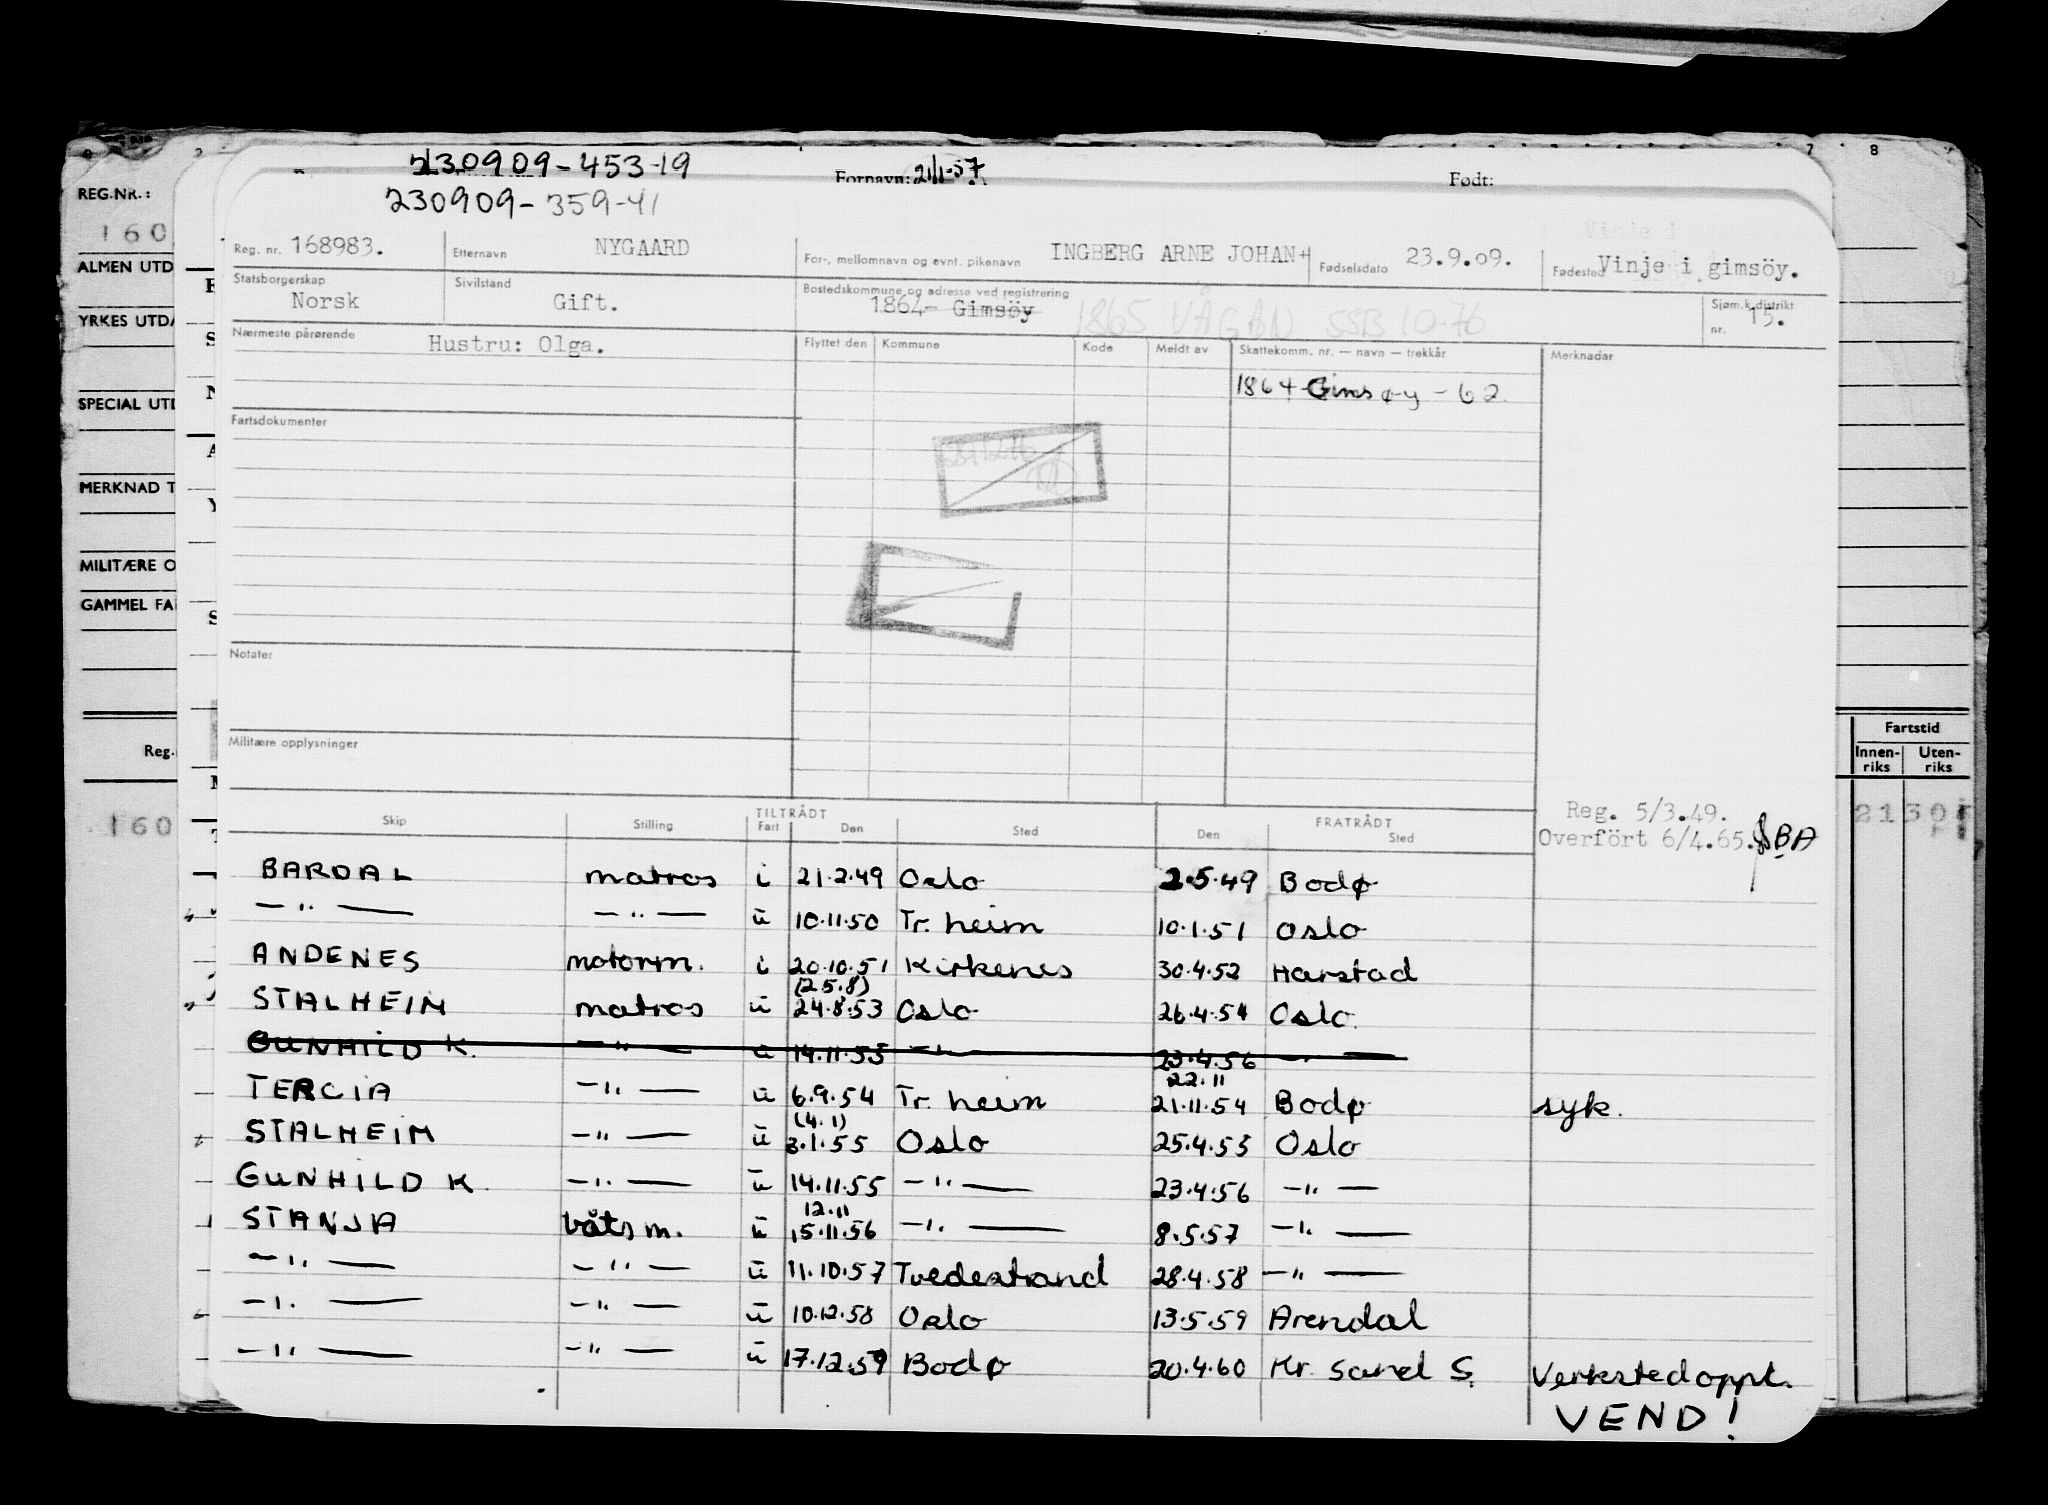 230909-453-19
Fornavn: 21/1-57
Født:
230909-359-41
REG.NR.:
160
ALMEN UTD
YRKES UTDA
SPECIAL UTD
MERKNAD T
MILITÆRE O
GAMMEL FA
Reg.
160
7 8
Reg. nr. 168983.
Etternavn NYGAARD
For-, mellomnavn og evnt. pikenavn INGBERG ARNE JOHAN+
Fødselsdato 23.9.09.
Fødested Vinje i gimsöy.
Statsborgerskap Norsk
Sivilstand Gift.
Bostedskommune og adresse ved registrering
1864- Gimsöy 1865 VÅGAN SSB 10-76
Sjøm.k.distrikt nr. 15.
Nærmeste pårørende Hustru: Olga.
Flyttet den Kommune Kode Meldt av Skattekomm. nr. — navn — trekkår Merknadar
1864 Gimsøy - 62
Fartsdokumenter
Notater
Militære opplysninger
Reg. 5/3.49.
Overfört 6/4.65. BA
Fartstid
Innen-riks Uten-riks
Skip Stilling TILTRÅDT Fart Den Sted FRATRÅDT Den Sted
BARDAL matros i 21.2.49 Oslo 2.5.49 Bodø
—"— —"— ū 10.11.50 Tr. heim 10.1.51 Oslo
ANDENES motorm. i 20.10.51 Kirkenes 30.4.52 Harstad
(25.8)
STALHEIM matros ū 24.8.53 Oslo 26.4.54 Oslo.
GUNHILD K. —"— ū 14.11.55 —"— 23.4.56 —"—
22.11
TERCIA —"— ū 6.9.54 Tr. heim 21.11.54 Bodø syk.
(4.1)
STALHEIM —"— ū 3.1.55 Oslo 25.4.55 Oslo
GUNHILD K. —"— ū 14.11.55 —"— 23.4.56 —"—
12.11
STANJA båtsm. ū 15.11.56 —"— 8.5.57 —"—
—"— —"— ū 11.10.57 Tvedestrand 28.4.58 —"—
—"— —"— ū 10.12.58 Oslo 13.5.59 Arendal
—"— —"— ū 17.12.59 Bodø 20.4.60 Kr. sand S. Verkstedoppt.
VEND!